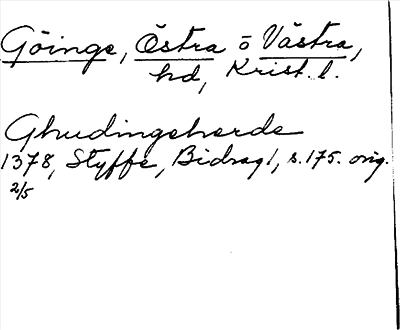 Göinge, Östra o Västra,
hd, Krist. l.
Ghudingeherde
1378, Styffe, Bidrag 1, s. 175. orig.
2/5